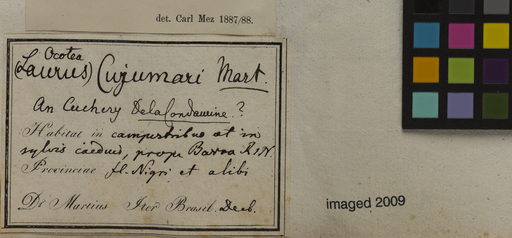 det. Carl Mez 1887/88.
Ocotea
(Laurus) Cujumari Mart.
An Cuchery DelaCondamine ?
Habitat in campestribus et in
sylvis caeduis, prope Barra R.N.
Provinciae fl. Nigri et alibi
Dr Martius Iter Brasil. Decb.
imaged 2009